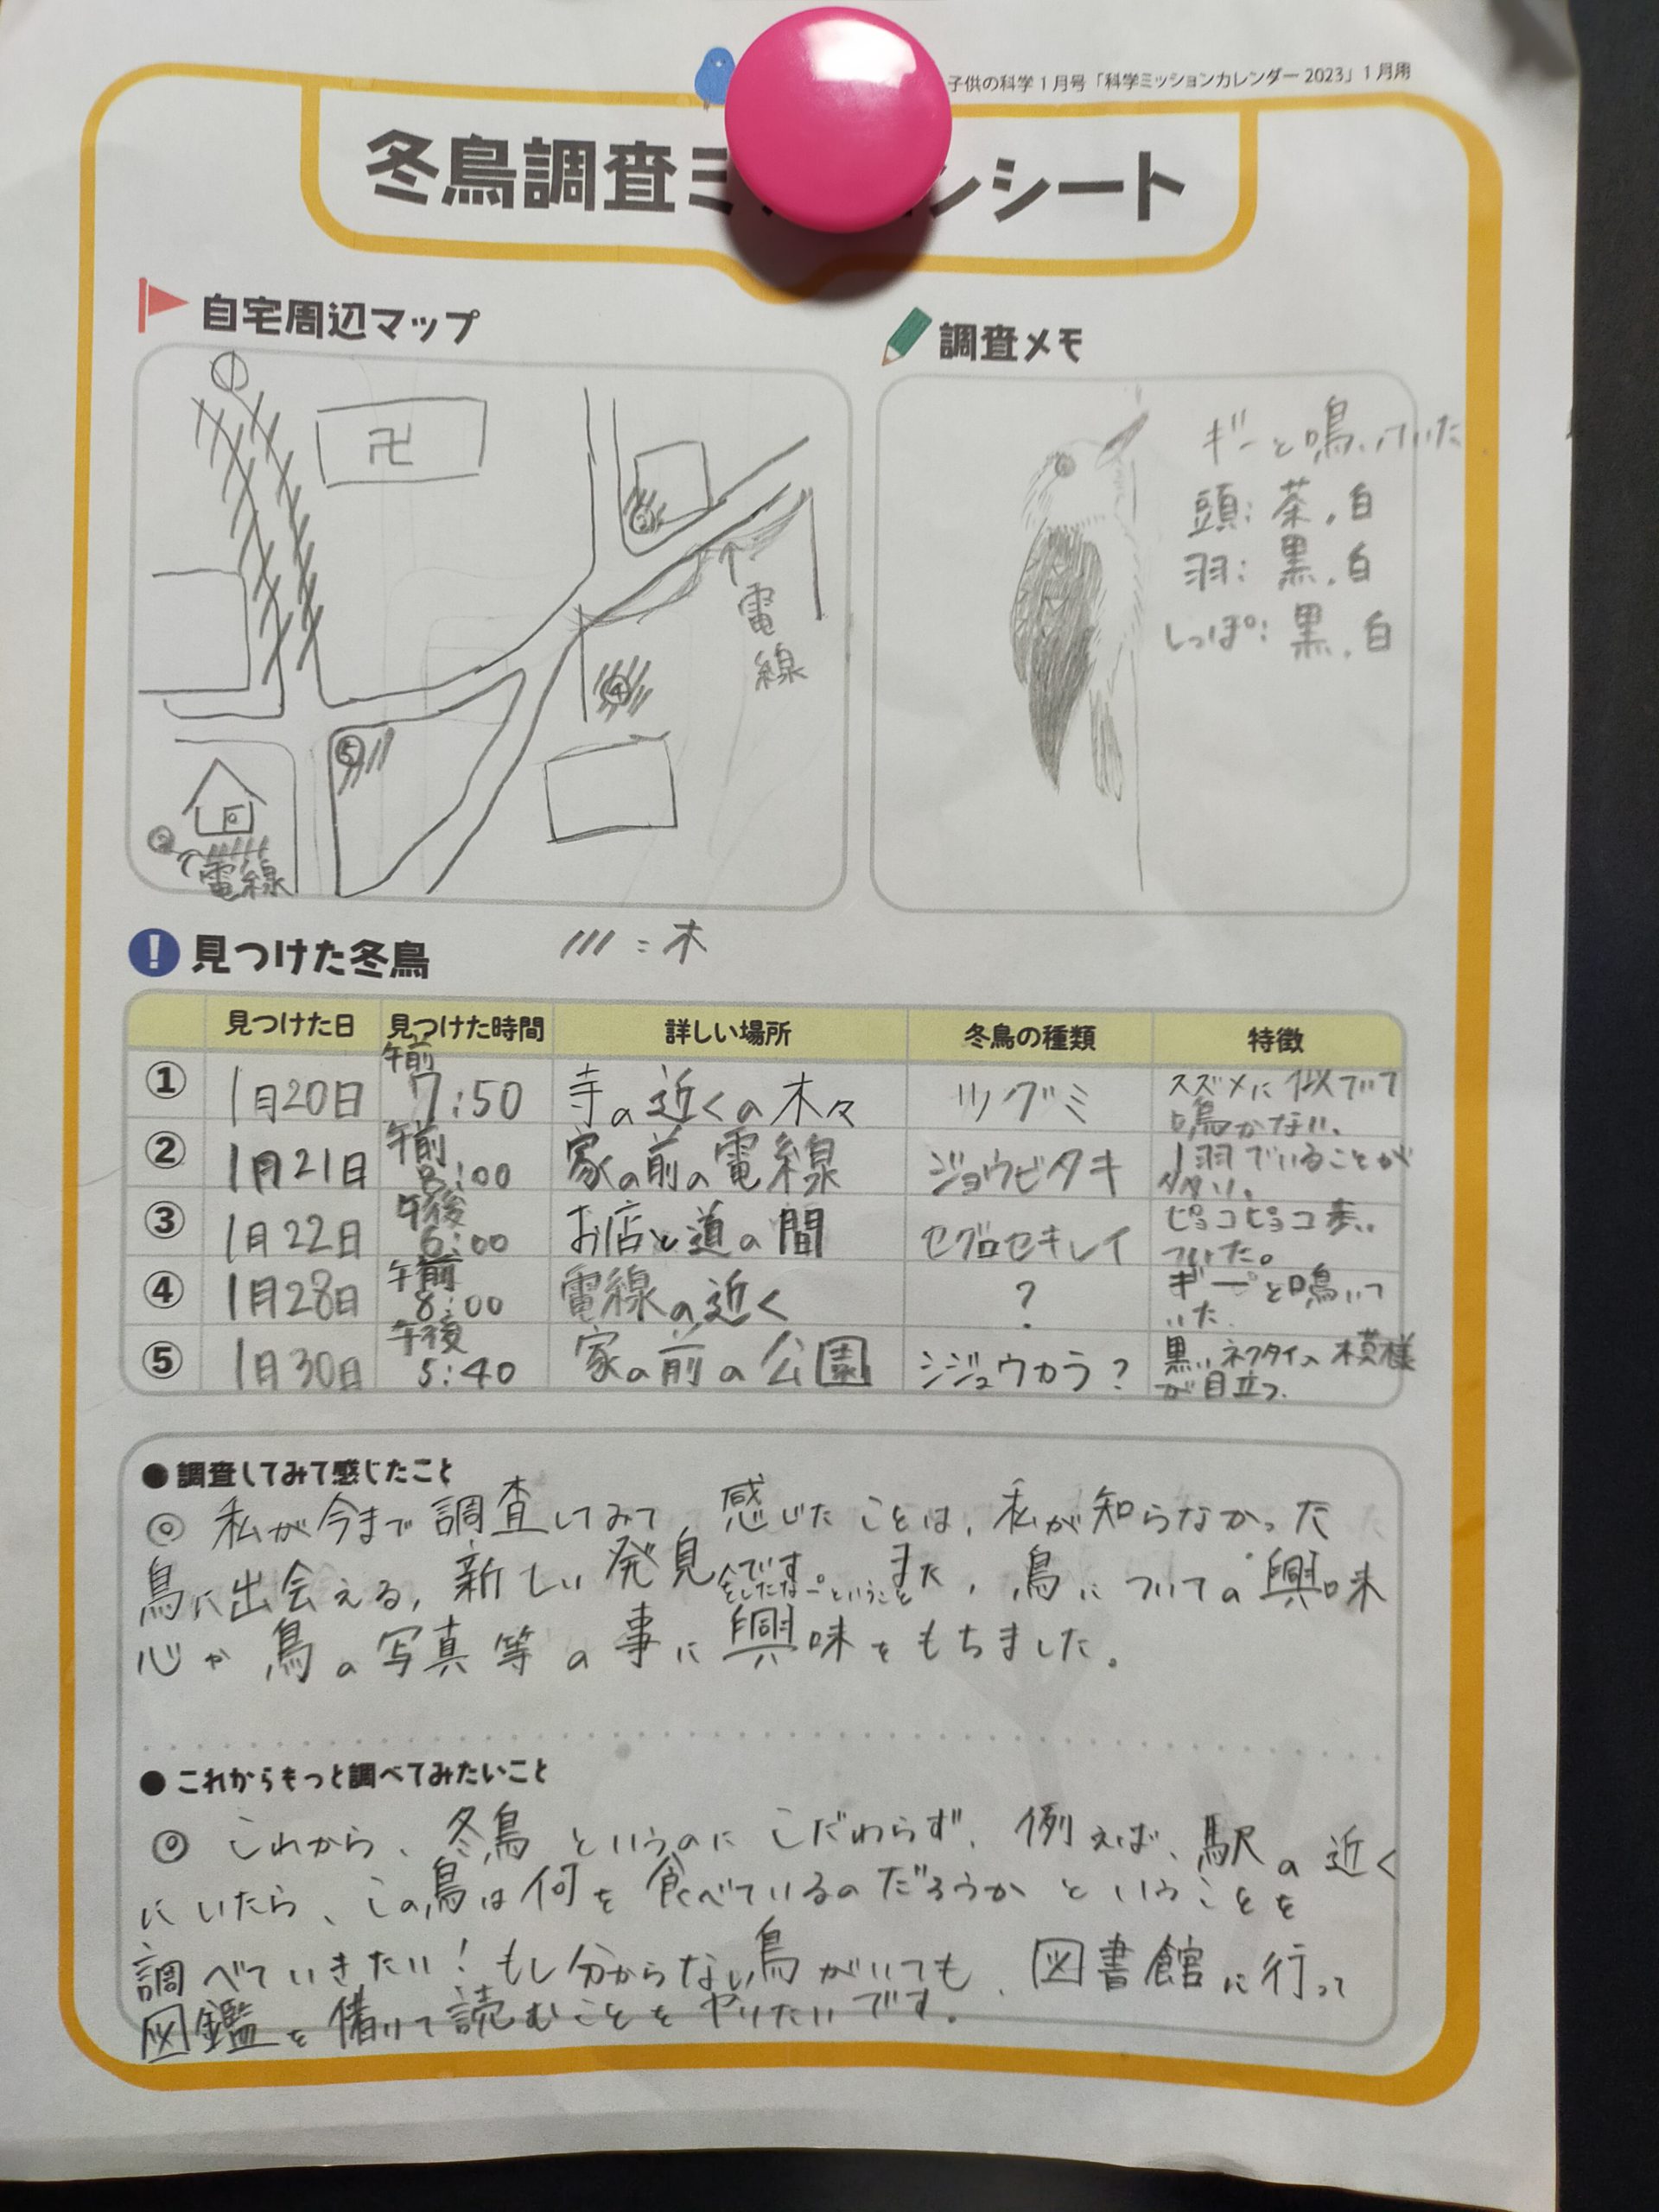 子供の科学1月号「科学ミッションカレンダー2023」1月用
冬鳥調査ミ ンシート
自宅周辺マップ
卍
②
電線
④
⑤
電線
調査メモ
ギーと鳴いていた
頭:茶,白
羽:黒,白
しっぽ:黒,白
/// = 木
! 見つけた冬鳥
見つけた日 見つけた時間 詳しい場所 冬鳥の種類 特徴
① 1月20日 午前7:50 寺の近くの木々 ツグミ スズメに似ていて鳴かない、
② 1月21日 午前8:00 家の前の電線 ジョウビタキ 1羽でいることが多い。
③ 1月22日 午後6:00 お店と道の間 セグロセキレイ ピョコピョコ歩いていた。
④ 1月28日 午前8:00 電線の近く ? ギーと鳴いていた.
⑤ 1月30日 午後5:40 家の前の公園 シジュウカラ? 黒いネクタイの模様が目立つ.
●調査してみて感じたこと
◎ 私が今まで調査してみて、感じたことは、私が知らなかった
鳥に出会える,新しい発見をしたなーということです。また,鳥についての興味
心か鳥の写真等の事に興味をもちました。
●これからもっと調べてみたいこと
◎ これから、冬鳥というのにこだわらず、例えば、駅の近く
にいたら、この鳥は何を食べているのだろうかということを
調べていきたい!もし分からない鳥がいても、図書館に行って
図鑑を借りて読むことをやりたいです。